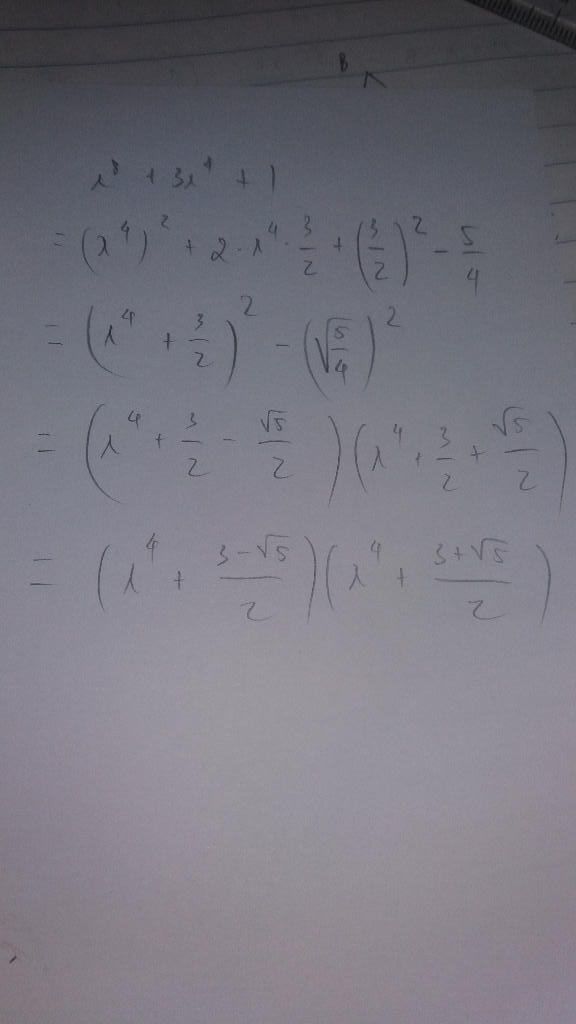 x⁸ + 3x⁴ + 1
= (x⁴)² + 2 · x⁴ · 3/2 + (3/2)² - 5/4
= (x⁴ + 3/2)² - (√5/4)²
= (x⁴ + 3/2 - √5/2)(x⁴ + 3/2 + √5/2)
= (x⁴ + (3-√5)/2)(x⁴ + (3+√5)/2)